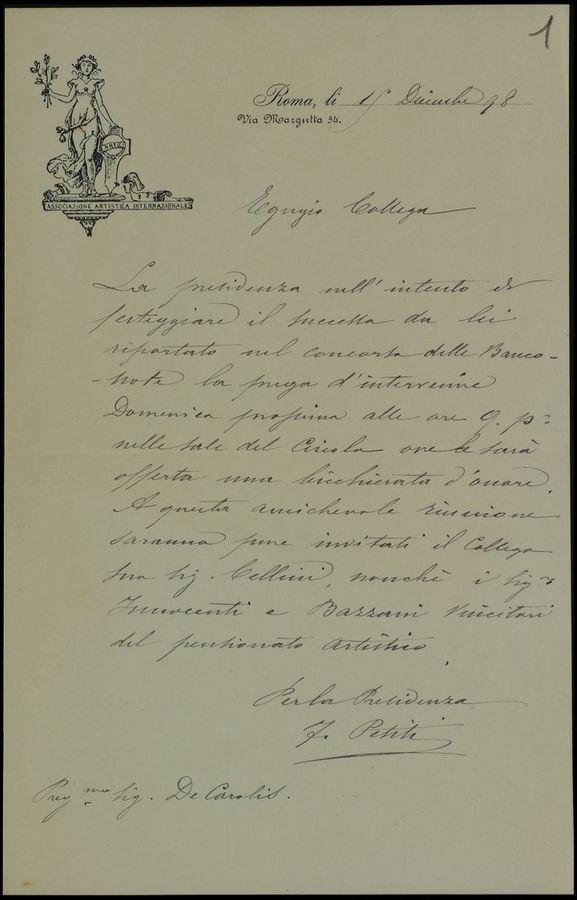 1
Roma, li 15 Dicembre 98
Via Margutta 54.
ASSOCIAZIONE ARTISTICA INTERNAZIONALE
Egregio Collega
La presidenza nell' intento di
festeggiare il successo da lei
riportato nel concorso delle Banco-
-note la prega d'intervenire
Domenica prossima alle ore 9. p.
nelle sale del Circolo ove le sarà
offerta una bicchierata d'onore.
A questa amichevole riunione
saranno pure invitati il Collega
suo Sig. Cellini, nonchè i Sigri
Innocenti e Bazzani Vincitori
del pensionato artistico.
Per la Presidenza
F. Petiti
Pregmo Sig. De Carolis.